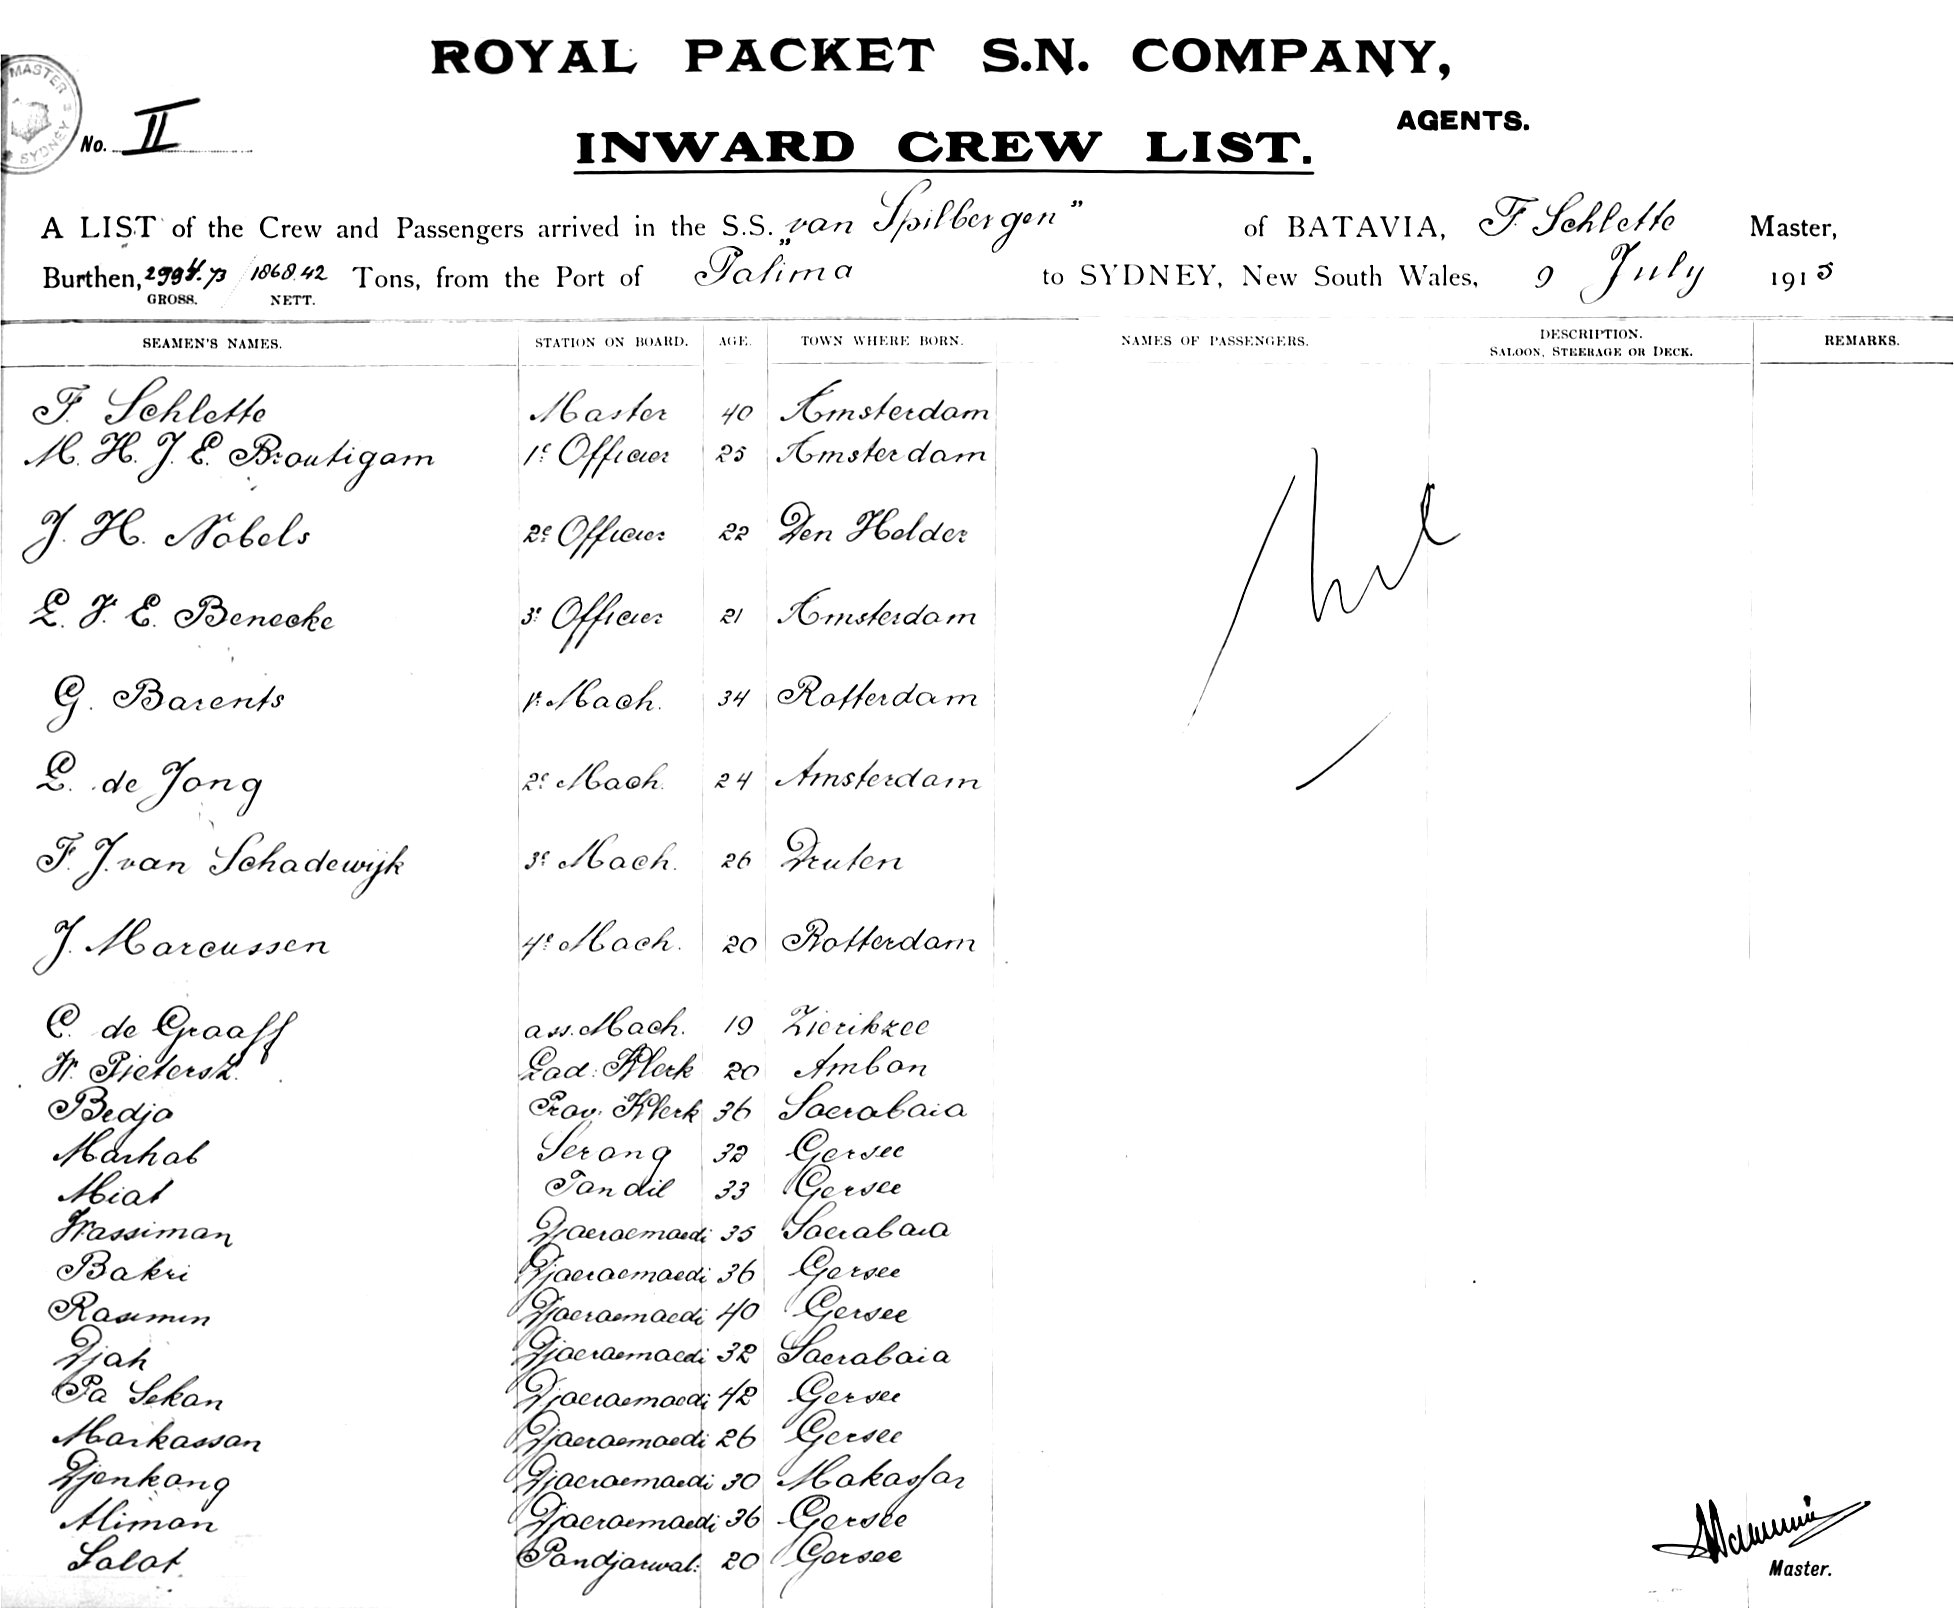 ROYAL PACKET S.N. COMPANY,
AGENTS.
MASTER
SYDNEY
No. II
INWARD CREW LIST.
A LIST of the Crew and Passengers arrived in the S.S. „van Spilbergen" of BATAVIA, F. Schlette Master,
Burthen, 2994.73 / 1868.42 Tons, from the Port of Palima to SYDNEY, New South Wales, 9 July 1915
GROSS. NETT.
SEAMEN'S NAMES. STATION ON BOARD. AGE. TOWN WHERE BORN. NAMES OF PASSENGERS. DESCRIPTION. SALOON, STEERAGE OR DECK. REMARKS.
F. Schlette Master 40 Amsterdam
M. H. J. E. Broutigam 1e Officier 25 Amsterdam
J. H. Nobels 2e Officier 22 Den Helder
L. F. E. Benecke 3e Officier 21 Amsterdam
Nil
G. Barents 1e Mach. 34 Rotterdam
L. de Jong 2e Mach. 24 Amsterdam
F. J. van Schadewijk 3e Mach. 26 Druten
J. Marcussen 4e Mach. 20 Rotterdam
C. de Graaff ass. Mach. 19 Zierikzee
W. Pietersz. Lad: Klerk 20 Ambon
Bedjo Prov: Klerk 36 Soerabaia
Marhab Serang 32 Gersee
Miat Tandil 33 Gersee
Wassiman Djoeroemoedi 35 Soerabaia
Bakri Djoeroemoedi 36 Gersee
Rasimin Djoeroemoedi 40 Gersee
Djah Djoeroemoedi 32 Soerabaia
Pa Sekan Djoeroemoedi 42 Gersee
Markassan Djoeroemoedi 26 Gersee
Djenkong Djoeroemoedi 30 Makassar
Aliman Djoeroemoedi 36 Gersee
Salat. Pandjarwal: 20 Gersee
Master.